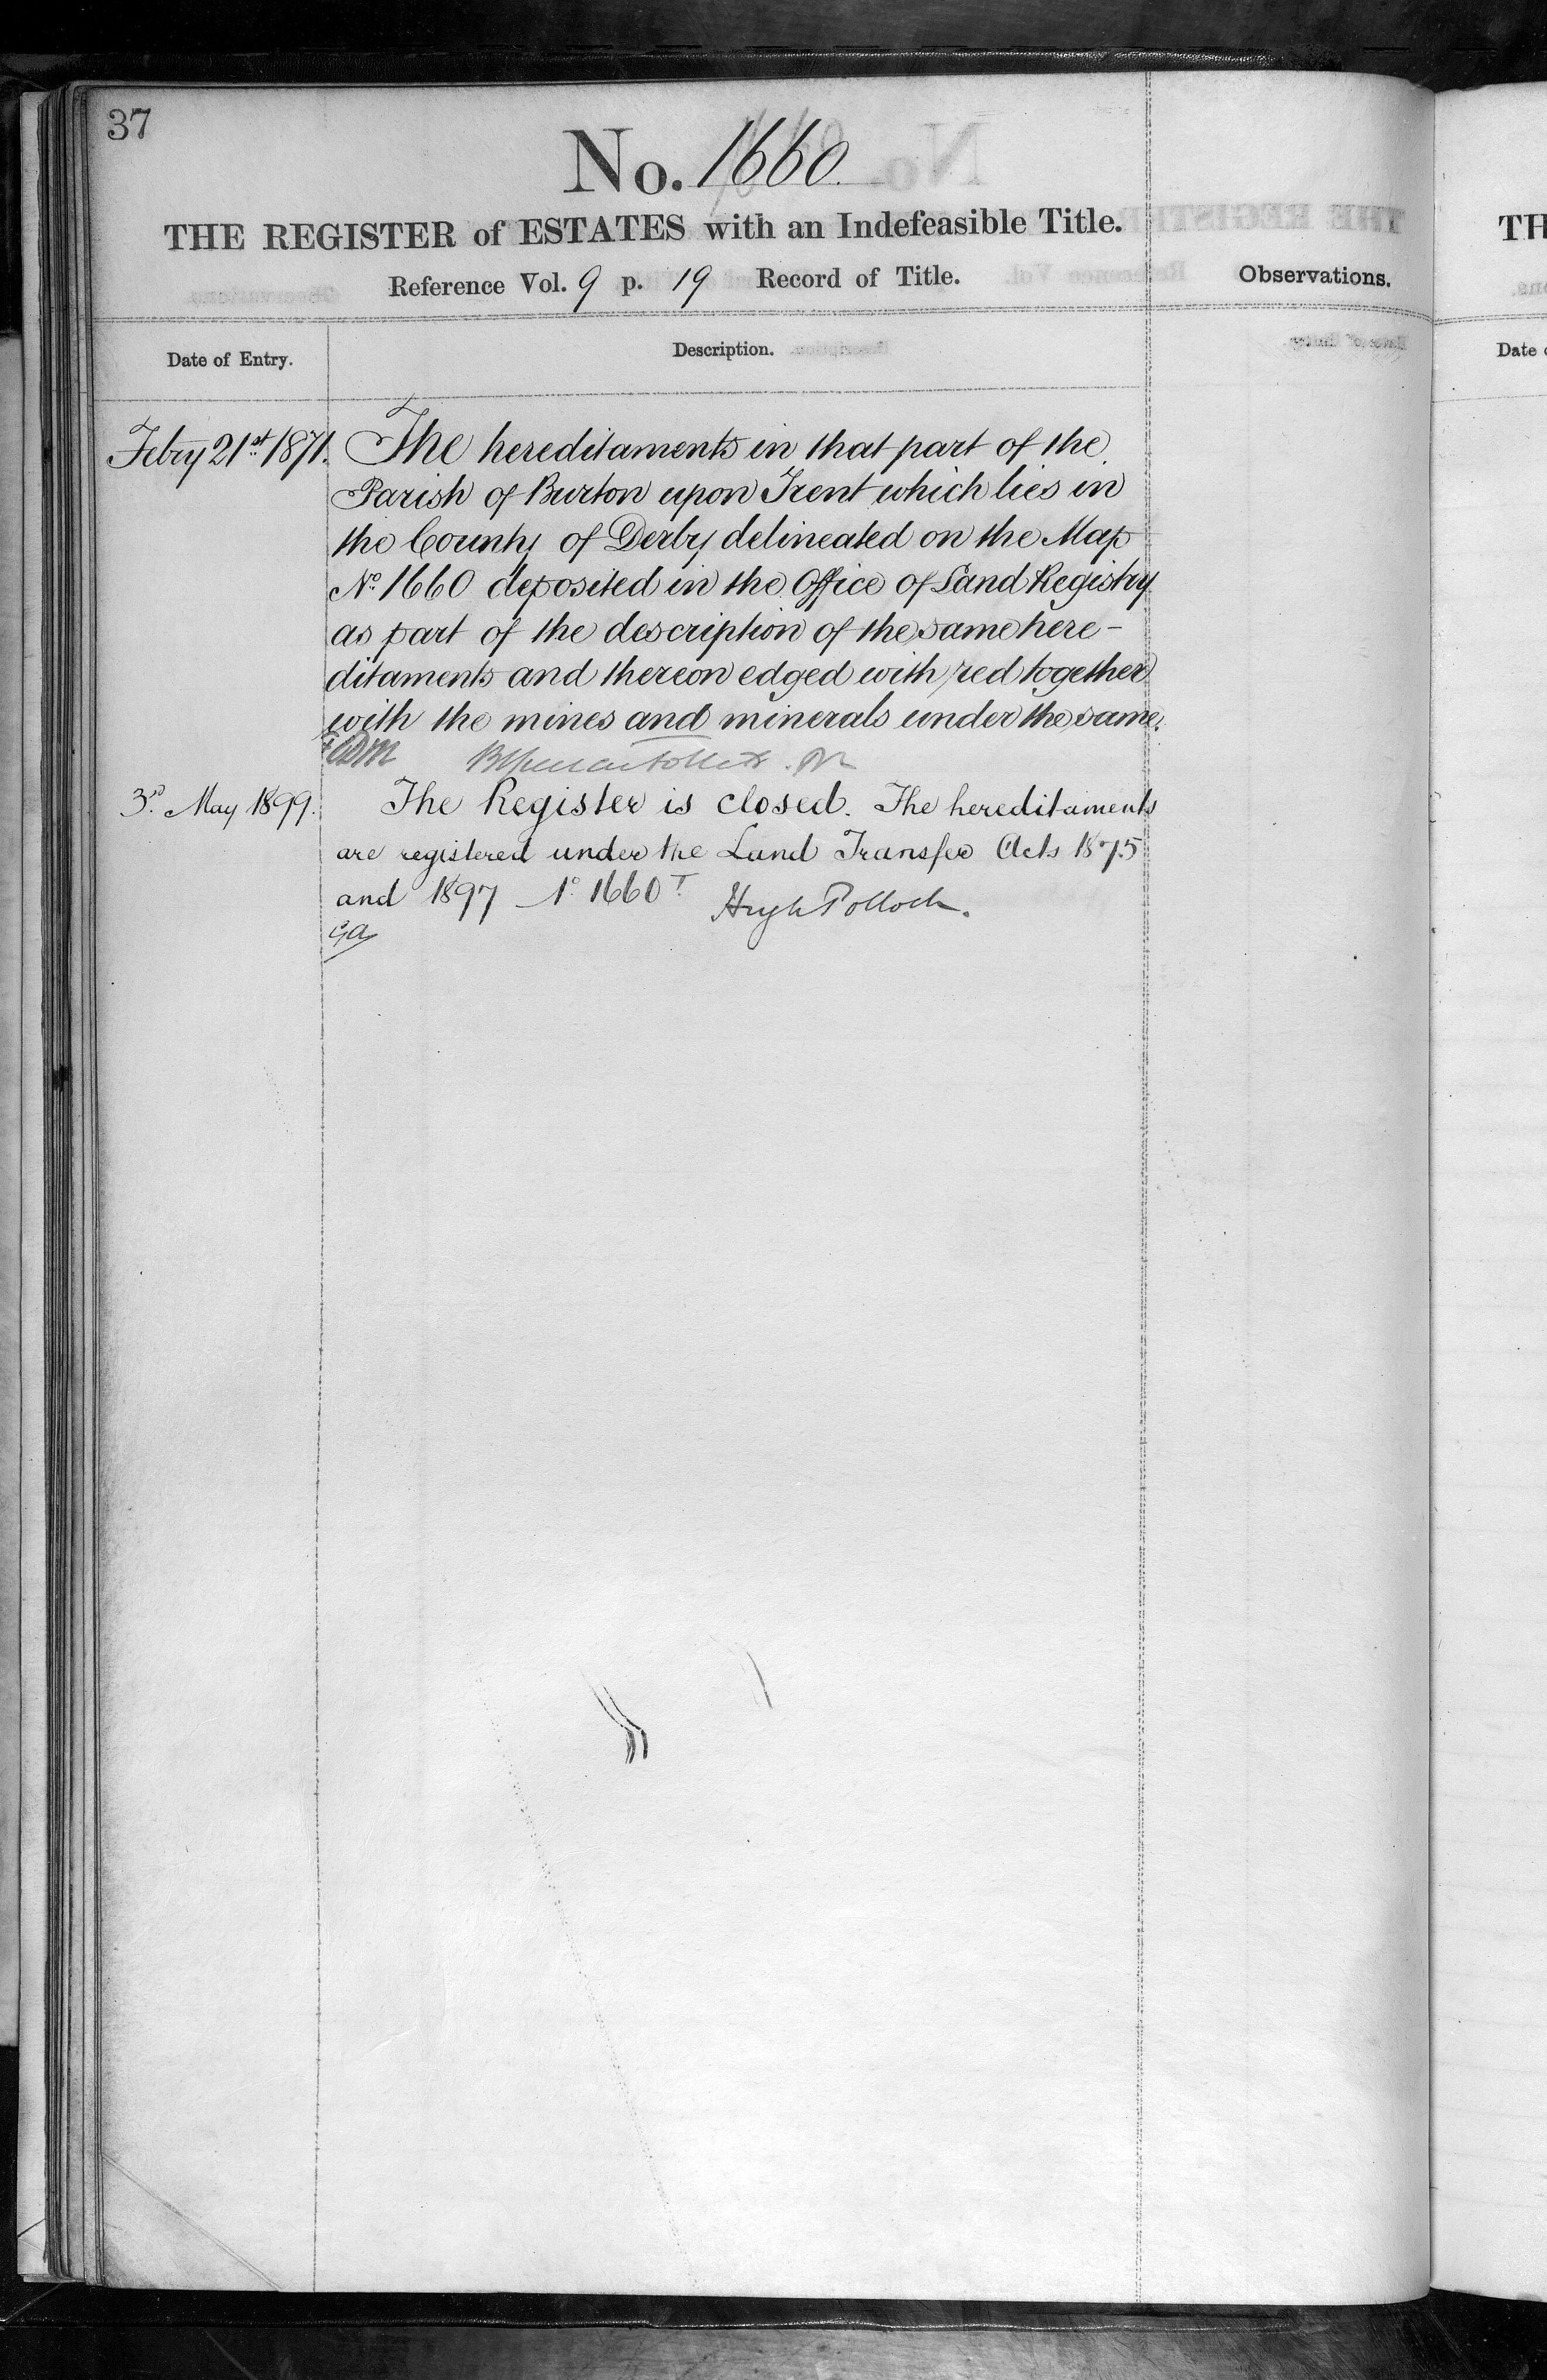 37
No. 1660.
THE REGISTER of ESTATES with an Indefeasible Title.
Reference Vol. 9 p. 19 Record of Title.
Observations.
Date of Entry.
Description.
Febry 21st 1871.
The hereditaments in that part of the
Parish of Burton upon Trent which lies in
the County of Derby delineated on the Map
No. 1660 deposited in the Office of Land Registry
as part of the description of the same here-
ditaments and thereon edged with red together
with the mines and minerals under the same.
3rd May 1899.
The Register is closed. The hereditaments
are registered under the Land Transfer Acts 1875
and 1897 No 1660 T. Hugh Pollock.
TH
Date